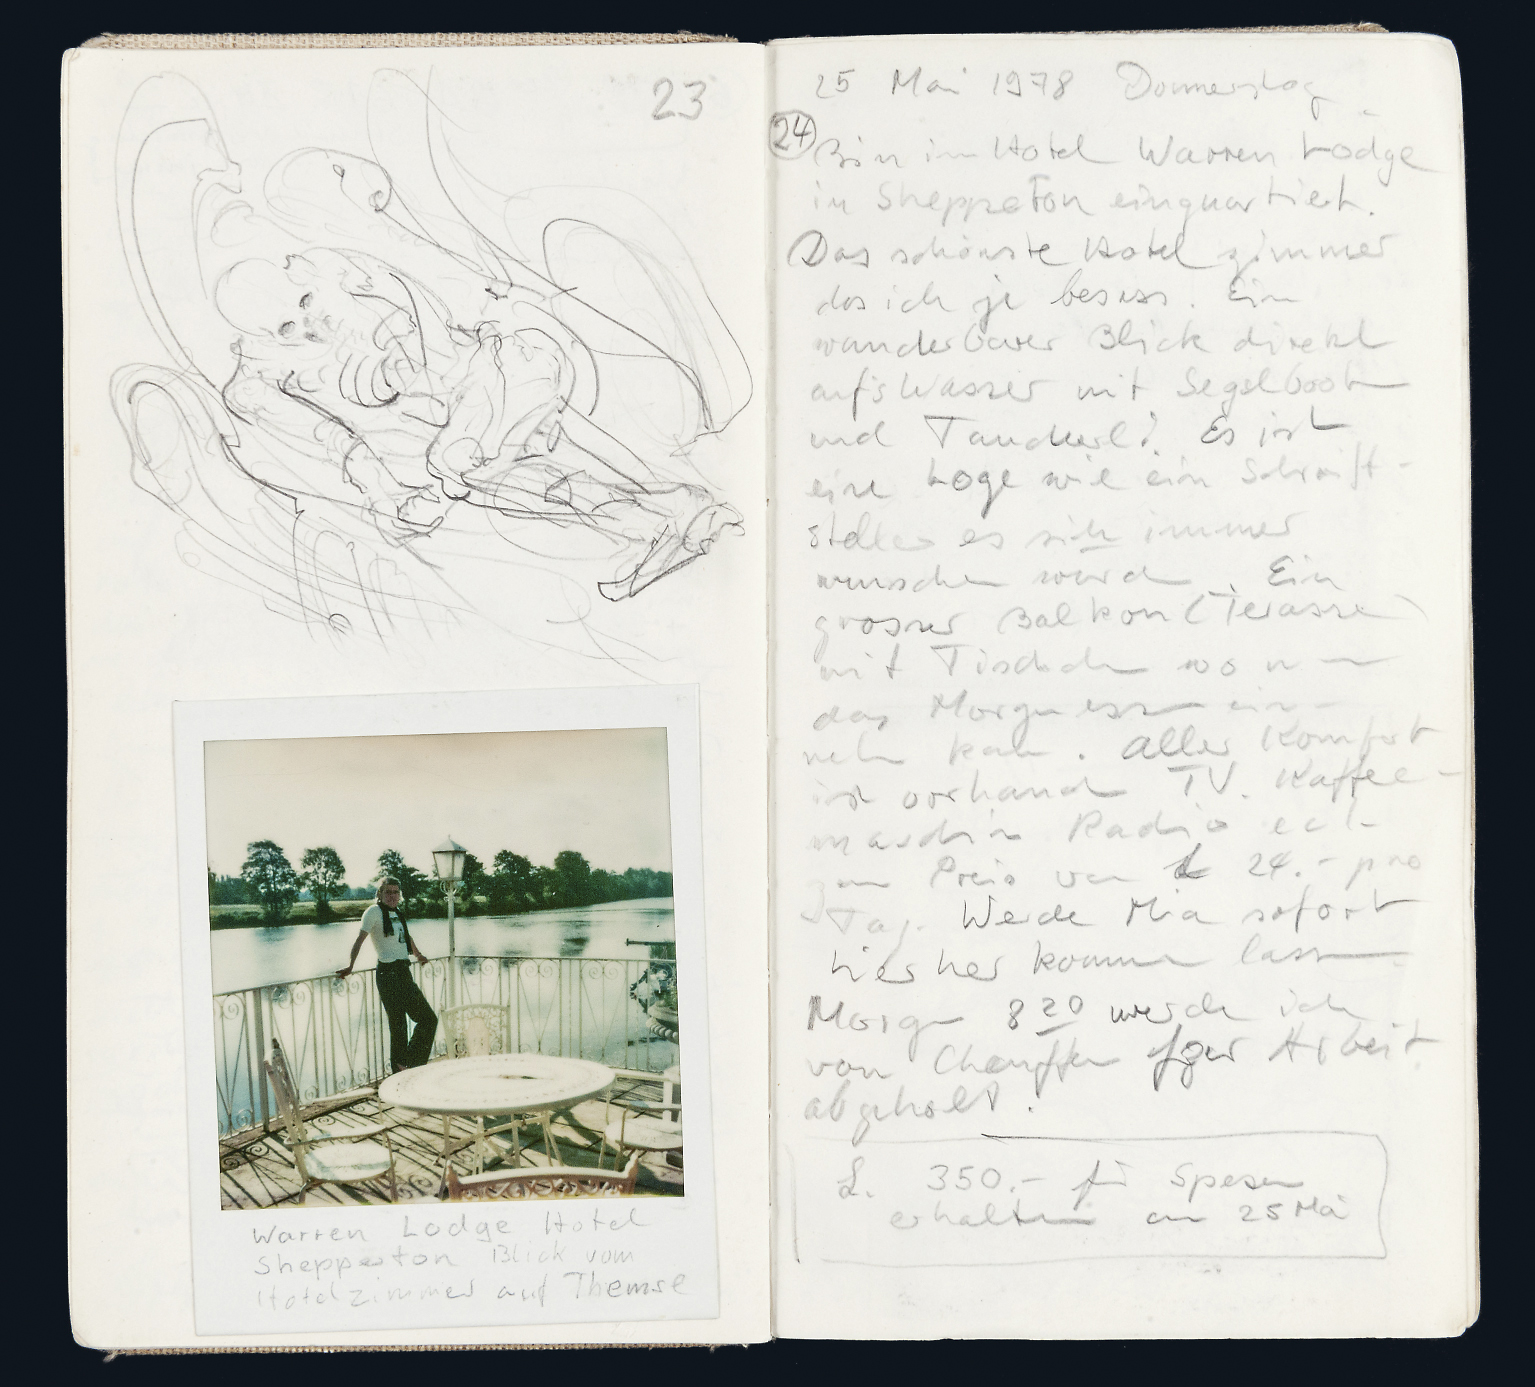 23
Warren Lodge Hotel
Shepperton Blick vom
Hotelzimmer auf Themse
25 Mai 1978 Donnerstag
24
Bin im Hotel Warren Lodge
in Shepperton einquartiert.
Das schönste Hotel zimmer
das ich je besass. Ein
wunderbarer Blick direkt
auf's Wasser mit Segelboot
und
Es ist
eine Loge wie ein Schrift-
steller es sich immer
wünschen würde. Ein
grosser Balkon (Terasse)
mit Tischchen wo man
das Morgenessen ein-
nehmen kann. Aller Komfort
ist vorhanden TV. Kaffee-
maschine Radio ect-
zum Preis von £ 24.- pro
Tag. Werde Mia sofort
hierher kommen lassen
Morgen 8 20 werde ich
von Chauffeur zur Arbeit
abgeholt.
£. 350.- für Spesen
erhalten am 25 Mai